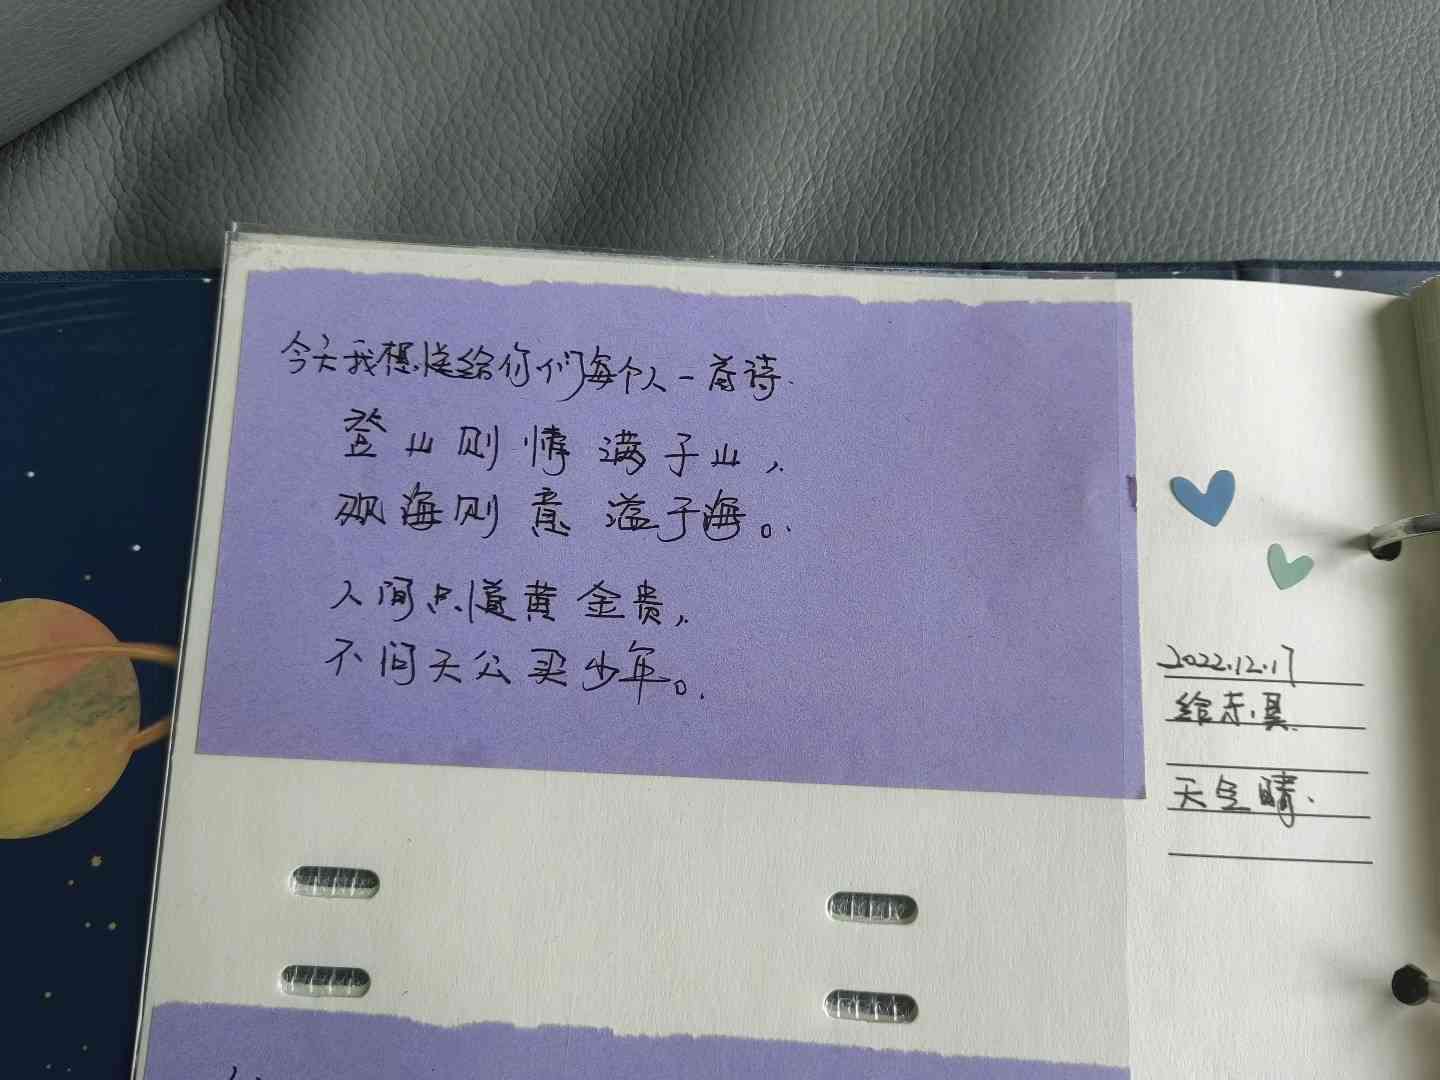 今天我想送给你们每个人一首诗.
登山则情满于山，
观海则意溢于海。
人间只道黄金贵，
不问天公买少年。
2022.12.17
给
天气晴.